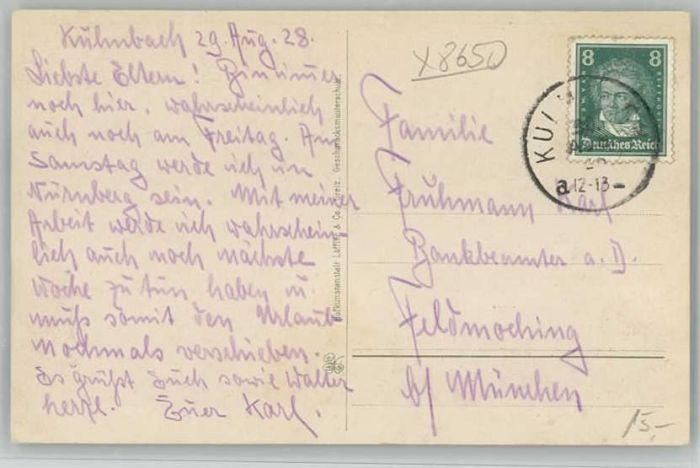 Kulmbach 29. Aug. 28.
Liebste Eltern! Bin immer
noch hier, wahrscheinlich
auch noch am Freitag. Am
Samstag werde ich in
Nürnberg sein. Mit meiner
Arbeit werde ich wahrschein
lich auch noch nächste
Woche zu tun haben u.
muß somit den Urlaub
nochmals verschieben.
Es grüßt Euch sowie Walter
herzl. Euer Karl.
Hofkunstanstalt Löffler & Co., Greiz. Geschmacksmusterschutz.
X8650
8 8
Deutsches Reich
KUL
a 12-13-
Familie
Fruhmann Karl
Bankbeamter a. D.
Feldmoching
b/ München
15,-